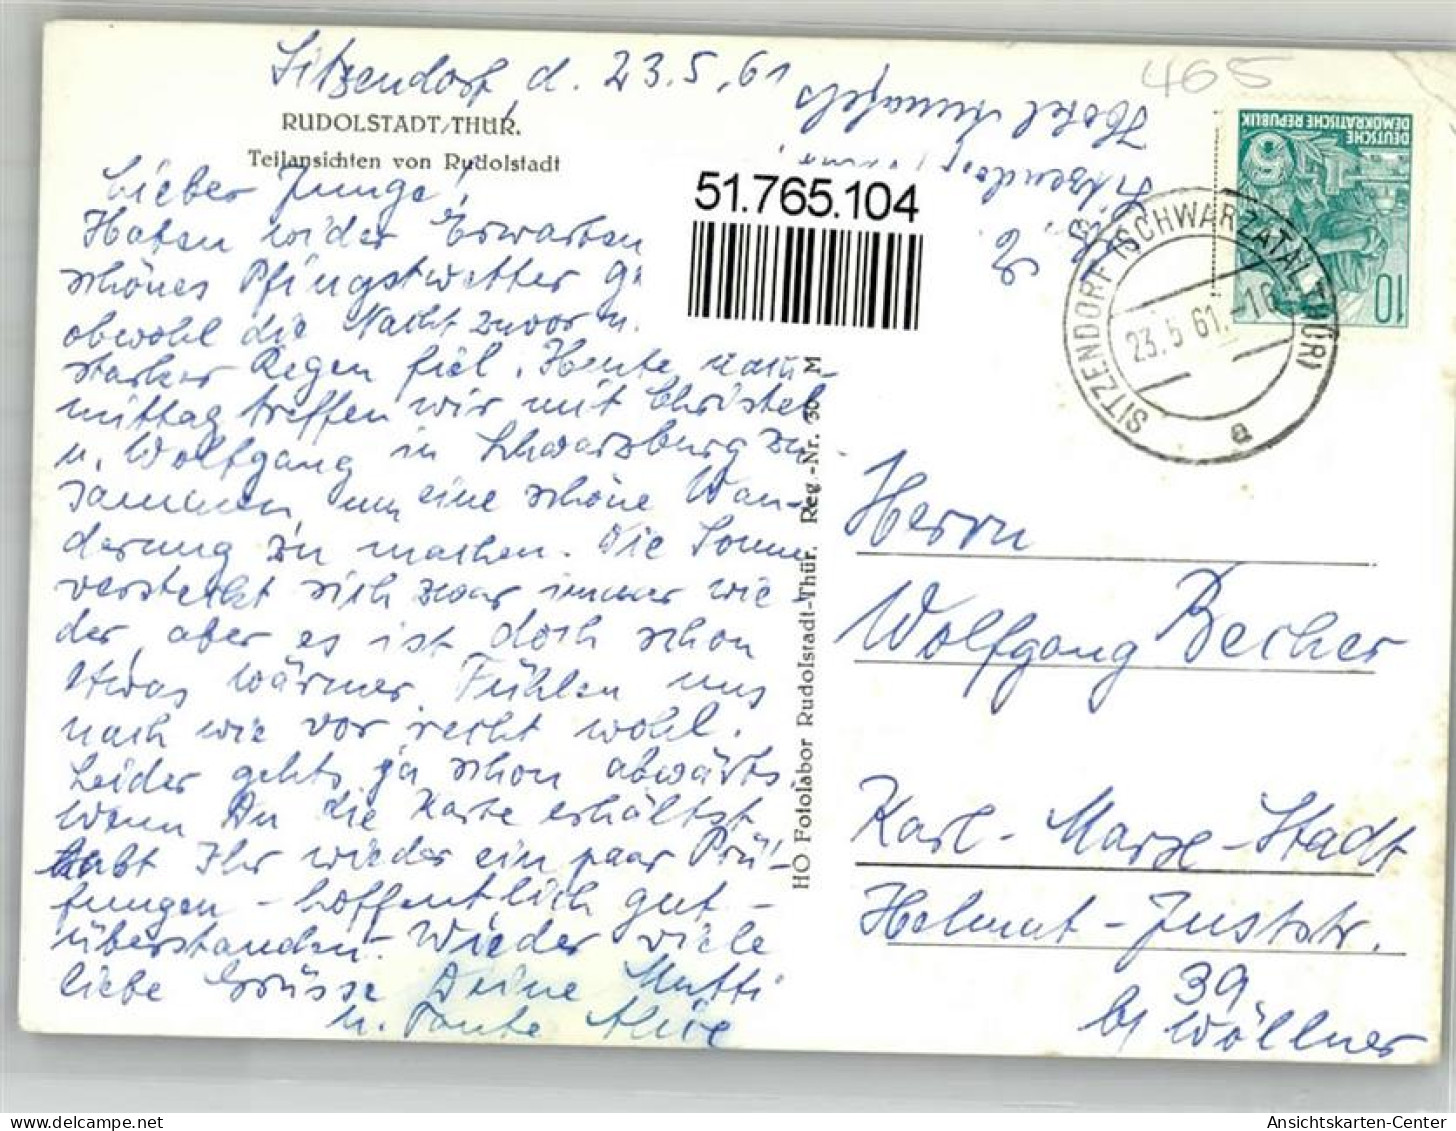 Sitzendorf, d. 23.5.61
RUDOLSTADT/THÜR.
Teilansichten von Rudolstadt
Lieber Junge!
Haben wider Erwarten
schönes Pfingstwetter
obwohl die Nacht zuvor
starker Regen fiel. Heute nach-
mittag treffen wir mit Christel
u. Wolfgang in Schwarzburg zu-
sammen, um eine schöne Wan-
derung zu machen. Die Sonne
versteckt sich zwar immer wie-
der, aber es ist doch schon
etwas wärmer Fühlen uns
nach wie vor recht wohl.
Leider gehts ja schon abwärts
Wenn Du die Karte erhältst
habt Ihr wieder ein paar Prü-
fungen - hoffentlich gut -
überstanden. Wieder viele
liebe Grüsse Deine Mutti
u. Tante Alice
Hotel
Sitzendorf
51.765.104
HO Fotolabor Rudolstadt-Thür. Reg.-Nr. 30 M
465
DEUTSCHE
DEMOKRATISCHE REPUBLIK
10
SITZENDORF (SCHWARZATAL THÜR)
23.5.61.-16
a
Herrn
Wolfgang Becher
Karl-Marx-Stadt
Helmut-Juststr.
39
bei Wöllner
AnsichtsKarten-Center